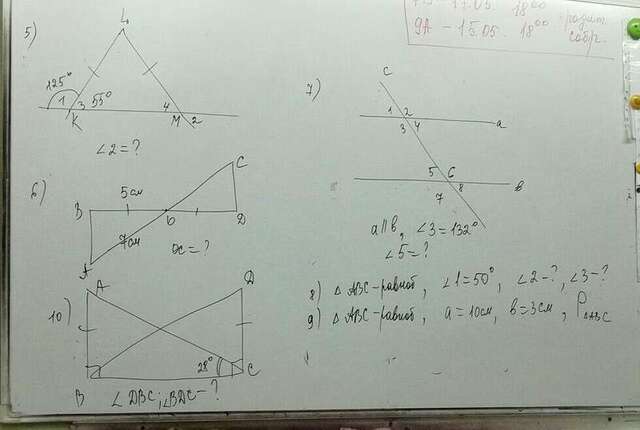 9А - 15.05. 18⁰⁰ собр.
5)
L
125°
1 3 55° 4
K M 2
∠2 = ?
6)
5см
C
B O D
7см
A
OC = ?
7)
C
1 2
3 4
a
5 6
7 8
b
a || b, ∠3 = 132°
∠5 = ?
8) △ ABC - равноб, ∠1 = 50°, ∠2 - ?, ∠3 - ?
9) △ ABC - равноб, a = 10см, b = 3см, P△ABC
10)
A D
28°
B C
∠ DBC; ∠BDC - ?